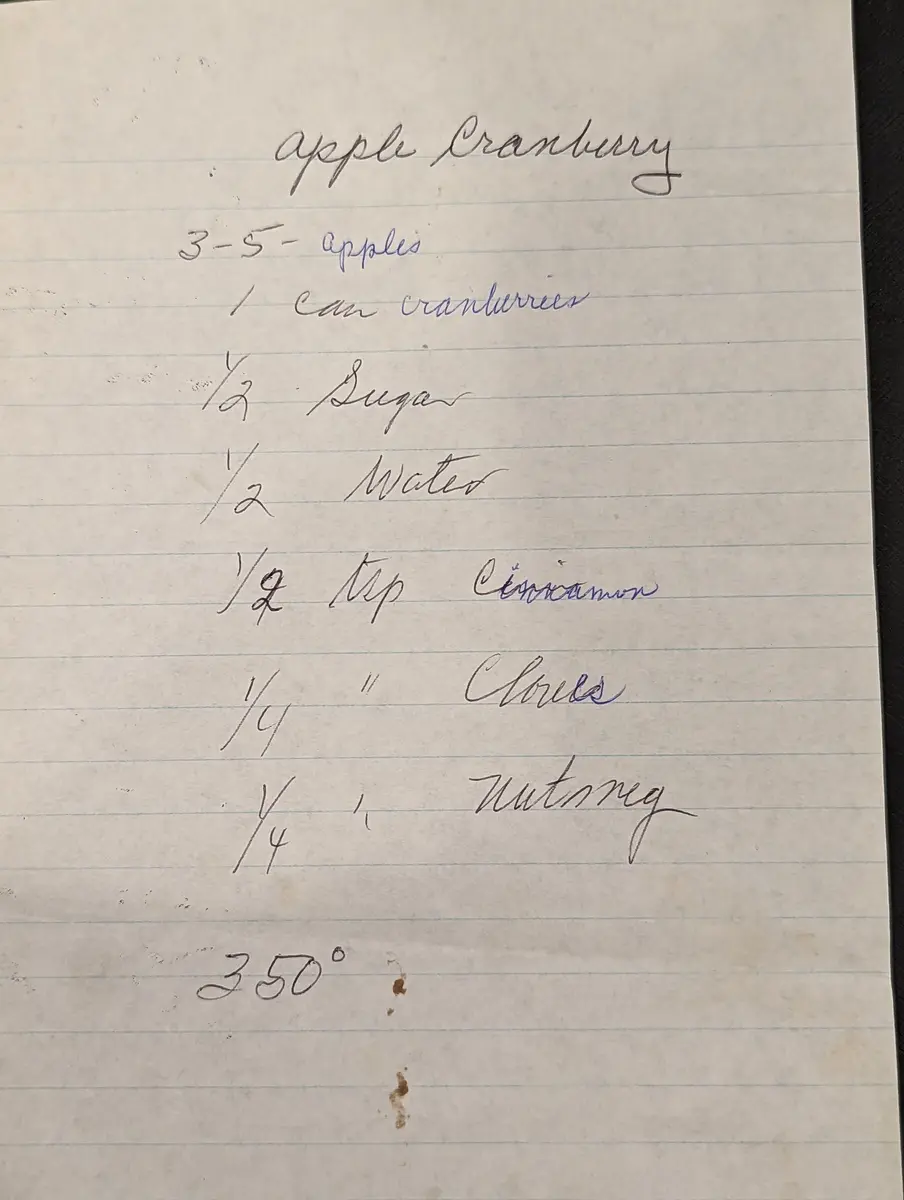 apple Cranberry
3-5- apples
1 can cranberries
1/2 Sugar
1/2 Water
1/2 tsp Cinnamon
1/4 " Cloves
1/4 " Nutmeg
350°